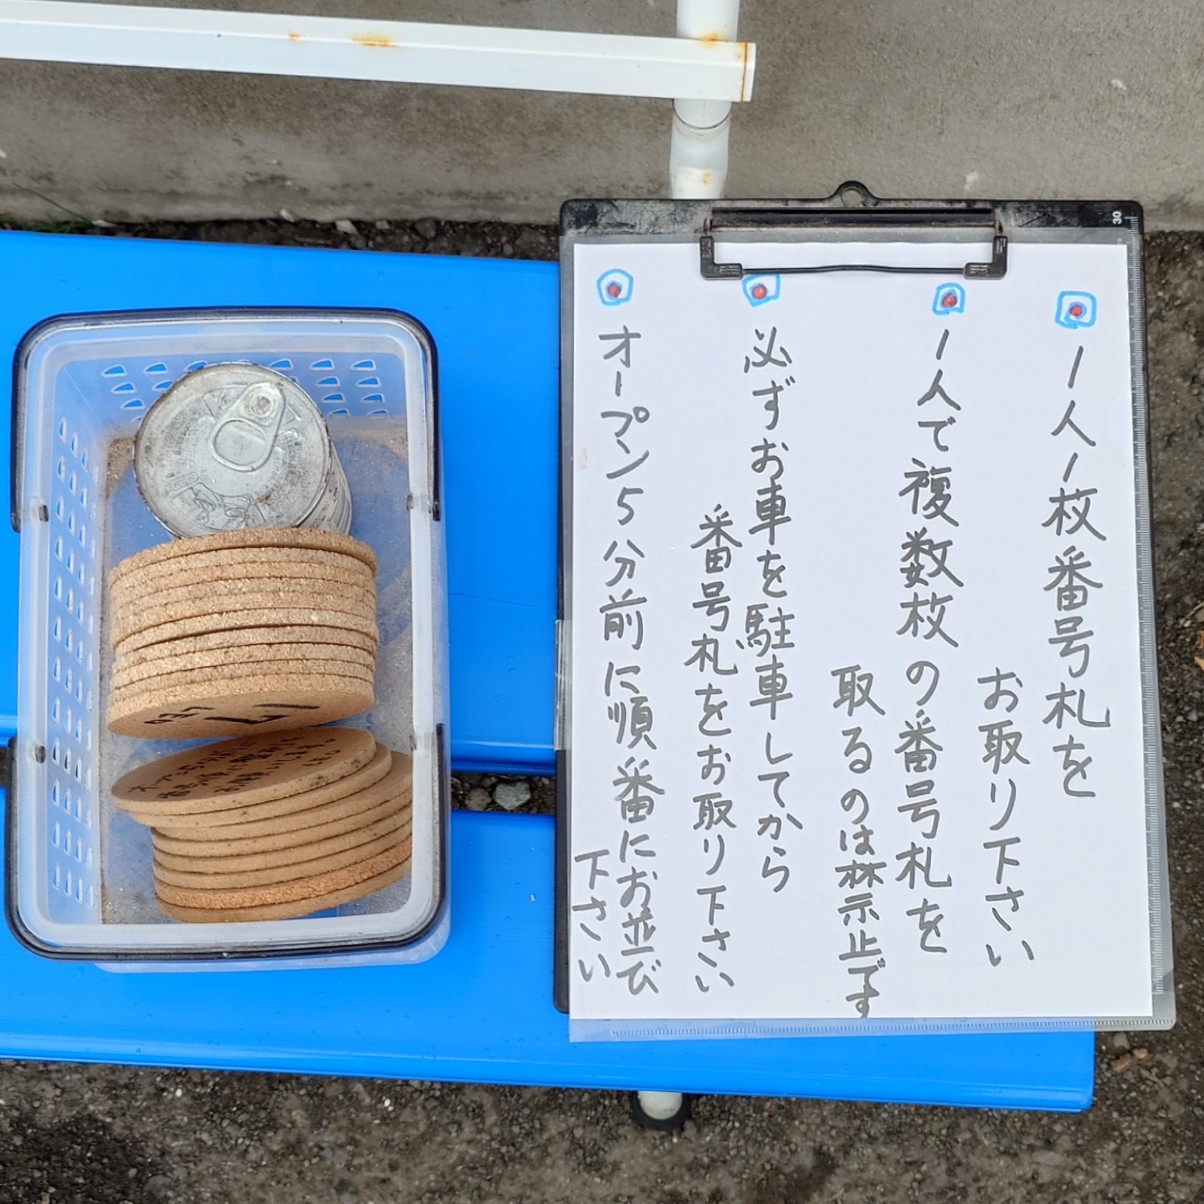 1人1枚番号札を
お取り下さい
1人で複数枚の番号札を
取るのは禁止です
必ずお車を駐車してから
番号札をお取り下さい
オープン5分前に順番にお並び
下さい
30